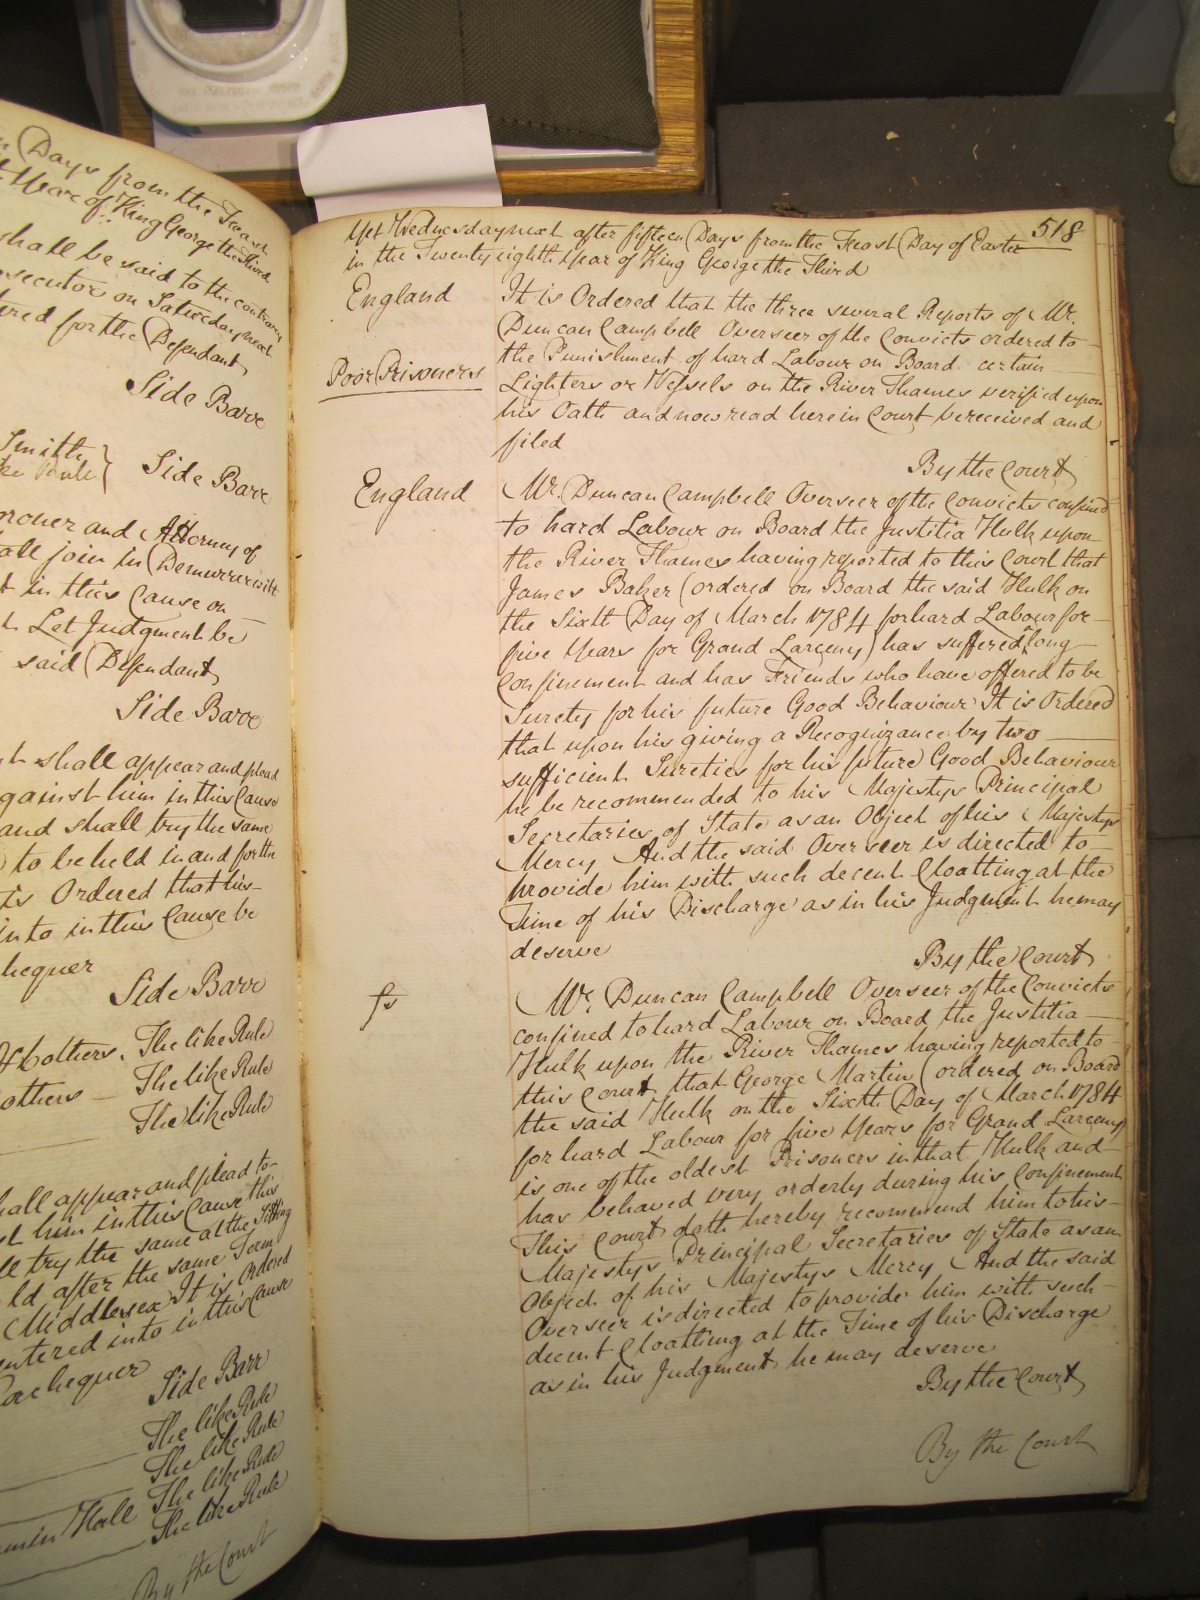 Days from the Feast
Year of King George the Third
shall be said to the contrary
secutor on Saturday next
red for the Defendant
Side Barr
Smith
Side Barr
oroner and Attorney of
all join in Demurrer with
t in this Cause on
Let Judgment be
said Defendant
Side Barr
shall appear and plead
gainst him in this Cause
and shall try the same
to be held in and for the
is Ordered that his
into in this Cause be
hequer
Side Barr
others The like Rule
others The like Rule
The like Rule
hall appear and plead to
st him in this Cause this
ll try the same at the Sitting
ld after the same Term
Middlesex It is Ordered
entered into in this Cause
Exchequer
Side Barr
The like Rule
The like Rule
Hall The like Rule
The like Rule
By the Court
518
Yet Wednesday next after fifteen Days from the Feast Day of Easter
in the Twenty eighth Year of King George the Third
England
Poor Prisoners
It is Ordered that the three several Reports of Mr.
Duncan Campbell Overseer of the Convicts ordered to
the Punishment of hard Labour on Board certain
Lighters or Vessels on the River Thames verified upon
his Oath and now read here in Court be received and
filed
By the Court
England
Mr. Duncan Campbell Overseer of the Convicts confined
to hard Labour on Board the Justitia Hulk upon
the River Thames having reported to this Court that
James Baker (ordered on Board the said Hulk on
the Sixth Day of March 1784 for hard Labour for
five Years for Grand Larceny) has suffered long
Confinement and has Friends who have offered to be
Surety for his future Good Behaviour It is Ordered
that upon his giving a Recognizance by two
sufficient Sureties for his future Good Behaviour
he be recommended to his Majestys Principal
Secretaries of State as an Object of his Majestys
Mercy And the said Overseer is directed to
provide him with such decent Cloathing at the
Time of his Discharge as in his Judgment he may
deserve
By the Court
Mr. Duncan Campbell Overseer of the Convicts
confined to hard Labour on Board the Justitia
Hulk upon the River Thames having reported to
this Court that George Martin (ordered on Board
the said Hulk on the Sixth Day of March 1784
for hard Labour for five Years for Grand Larceny)
is one of the oldest Prisoners in that Hulk and
has behaved very orderly during his Confinement
This Court doth hereby recommend him to his
Majestys Principal Secretaries of State as an
Object of his Majestys Mercy And the said
Overseer is directed to provide him with such
decent Cloathing at the Time of his Discharge
as in his Judgment he may deserve
By the Court
By the Court